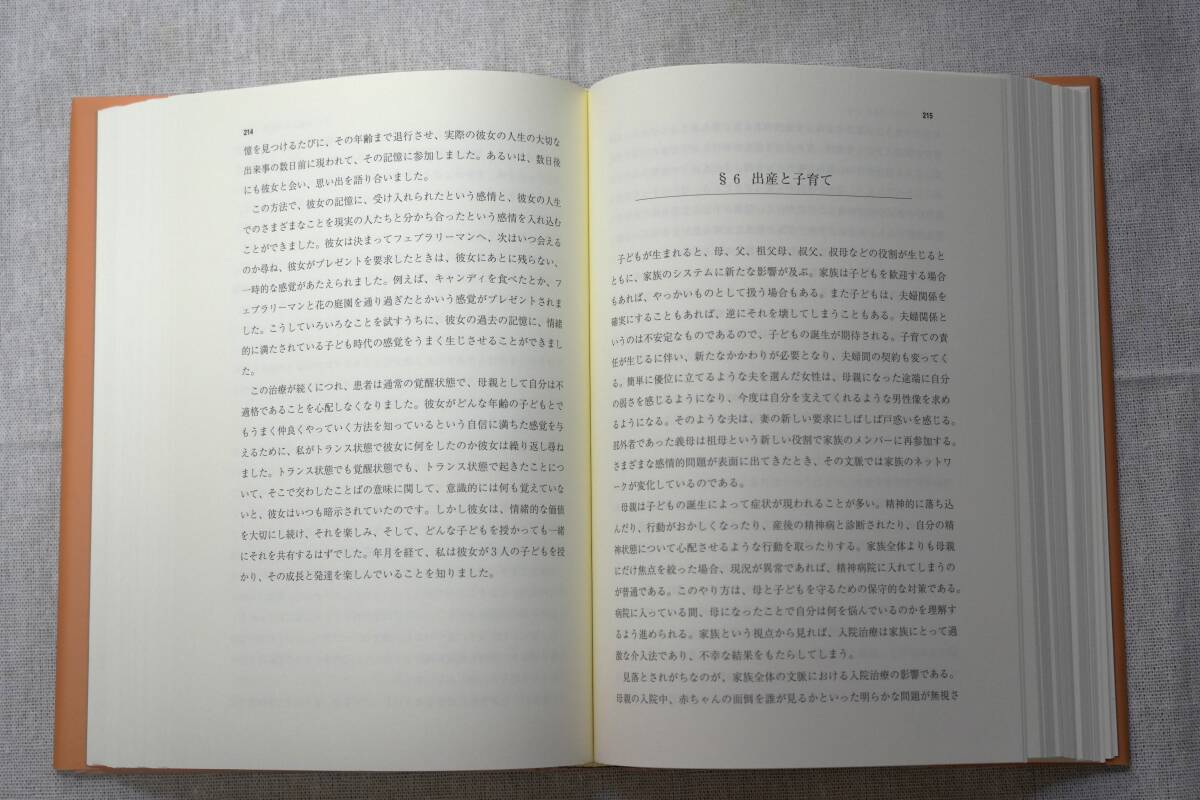 214
憶を見つけるたびに、その年齢まで退行させ、実際の彼女の人生の大切な
出来事の数日前に現われて、その記憶に参加しました。あるいは、数日後
にも彼女と会い、思い出を語り合いました。
この方法で、彼女の記憶に、受け入れられたという感情と、彼女の人生
でのさまざまなことを現実の人たちと分かち合ったという感情を入れ込む
ことができました。彼女は決まってフェブラリーマンへ、次はいつ会える
のか尋ね、彼女がプレゼントを要求したときは、彼女にあとに残らない、
一時的な感覚があたえられました。例えば、キャンディを食べたとか、フ
ェブラリーマンと花の庭園を通り過ぎたとかいう感覚がプレゼントされま
した。こうしていろいろなことを試すうちに、彼女の過去の記憶に、情緒
的に満たされている子ども時代の感覚をうまく生じさせることができまし
た。
この治療が続くにつれ、患者は通常の覚醒状態で、母親として自分は不
適格であることを心配しなくなりました。彼女がどんな年齢の子どもとで
もうまく仲良くやっていく方法を知っているという自信に満ちた感覚を与
えるために、私がトランス状態で彼女に何をしたのか彼女は繰り返し尋ね
ました。トランス状態でも覚醒状態でも、トランス状態で起きたことにつ
いて、そこで交わしたことばの意味に関して、意識的には何も覚えていな
いと、彼女はいつも暗示されていたのです。しかし彼女は、情緒的な価値
を大切にし続け、それを楽しみ、そして、どんな子どもを授かっても一緒
にそれを共有するはずでした。年月を経て、私は彼女が3人の子どもを授
かり、その成長と発達を楽しんでいることを知りました。
215
§6 出産と子育て
子どもが生まれると、母、父、祖父母、叔父、叔母などの役割が生じると
ともに、家族のシステムに新たな影響が及ぶ。家族は子どもを歓迎する場合
もあれば、やっかいものとして扱う場合もある。また子どもは、夫婦関係を
確実にすることもあれば、逆にそれを壊してしまうこともある。夫婦関係と
いうのは不安定なものであるので、子どもの誕生が期待される。子育ての責
任が生じるに伴い、新たなかかわりが必要となり、夫婦間の契約も変ってく
る。簡単に優位に立てるような夫を選んだ女性は、母親になった途端に自分
の弱さを感じるようになり、今度は自分を支えてくれるような男性像を求め
るようになる。そのような夫は、妻の新しい要求にしばしば戸惑いを感じる。
部外者であった義母は祖母という新しい役割で家族のメンバーに再参加する。
さまざまな感情的問題が表面に出てきたとき、その文脈では家族のネットワ
ークが変化しているのである。
母親は子どもの誕生によって症状が現われることが多い。精神的に落ち込
んだり、行動がおかしくなったり、産後の精神病と診断されたり、自分の精
神状態について心配させるような行動を取ったりする。家族全体よりも母親
にだけ焦点を絞った場合、現況が異常であれば、精神病院に入れてしまうの
が普通である。このやり方は、母と子どもを守るための保守的な対策である。
病院に入っている間、母になったことで自分は何を悩んでいるのかを理解す
るよう進められる。家族という視点から見れば、入院治療は家族にとって過
激な介入法であり、不幸な結果をもたらしてしまう。
見落とされがちなのが、家族全体の文脈における入院治療の影響である。
母親の入院中、赤ちゃんの面倒を誰が見るかといった明らかな問題が無視さ